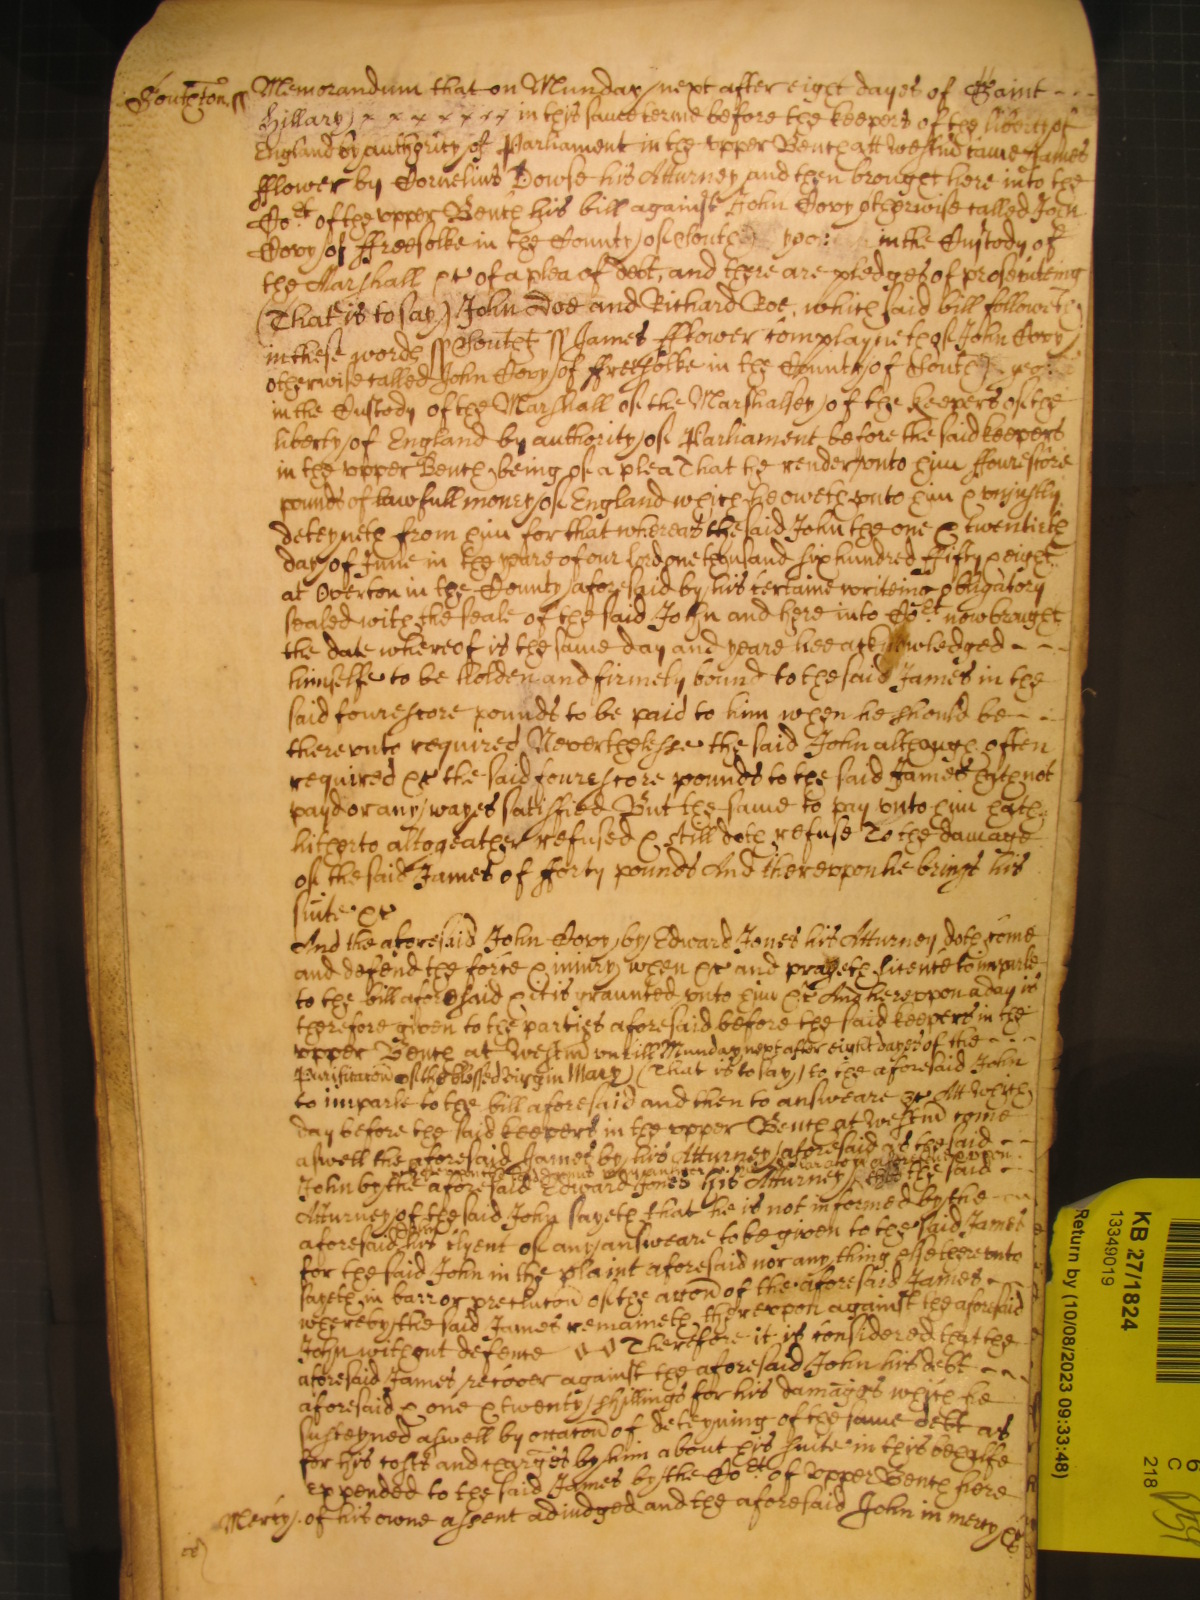 Southton ss Memorandum that on Munday next after eight dayes of Saint
Hillary x x x x x x x in this same terme before the keepers of the liberty of
England by authority of Parliament in the vpper Bench att Westmr came James
fflower by Cornelius Dowse his Atturney and then brought here into the
Cort of the vpper Bench his bill against John Covy otherwise called John
Covy of ffreefolke in the County of South yeo: in the Custody of
the Marshall &c of a plea of debt, and there are pledges of prosecuteing
(That is to say) John Doe and Richard Roe, which said bill followeth
in these words ss Southt ss James fflower complayneth of John Covy
otherwise called John Covy of ffreefolke in the County of South yeo:
in the Custody of the Marshall of the Marshalsey of the keepers of the
liberty of England by authority of Parliament before the said keepers
in the vpper Bench being of a plea That he render vnto him ffourescore
pounds of lawfull money of England which he oweth vnto him & vniustly
deteyneth from him for that whereas the said John the one & twentieth
day of June in the yeare of our Lord one thousand six hundred ffifty & eight
at Overton in the County aforesaid by his certaine writeing obligatory
sealed with the seale of the said John and here into Cort now brought
the date whereof is the same day and yeare hee acknowledged
himselfe to be holden and firmely bound to the said James in the
said fourescore pounds to be paid to him when he should be
therevnto required Neverthelesse the said John although often
required &c the said fourescore pounds to the said James hath not
payd or any wayes satisfied But the same to pay vnto him hath
hitherto altogeather refused & still doth refuse To the damage
of the said James of fforty pounds And therevpon he brings his
suite &c
And the aforesaid John Covy by Edward Jones his Atturney doth come
and defend the force & iniury when &c and prayeth licence to imparle
to the bill aforesaid & it is graunted vnto him &c And herevpon a day is
therefore given to the parties aforesaid before the said keepers in the
vpper Bench at Westmr vntill Munday next after eight dayes of the
Purificacon of the blessed Virgin Mary (That is to say) to the aforesaid John
to imparle to the bill aforesaid and then to answeare &c Att which
day before the said keepers in the vpper Bench at Westmr come
aswell the aforesaid James by his Atturney aforesaid as the said
John by the aforesaid Edward Jones his Atturney the said
Atturney of the said John sayeth that he is not informed by the
aforesaid his Clyent of any answeare to be given to the said James
for the said John in the plaint aforesaid nor any thing else therevnto
sayeth in barr or preclucon of the accon of the aforesaid James
whereby the said James remaineth therevpon against the aforesaid
John without defence Therefore it is considered that the
aforesaid James recover against the aforesaid John his debt
aforesaid & one & twenty shillings for his damages which he
susteyned aswell by occacon of deteyning of the same debt as
for his costs and charges by him about his suite in this behalfe
expended to the said James by the Cort of vpper Bench here
Mercy. of his owne assent adiudged and the aforesaid John in mercy &c
KB 27/1824
13349019
Return by (10/08/2023 09:33:48)
6
C
218